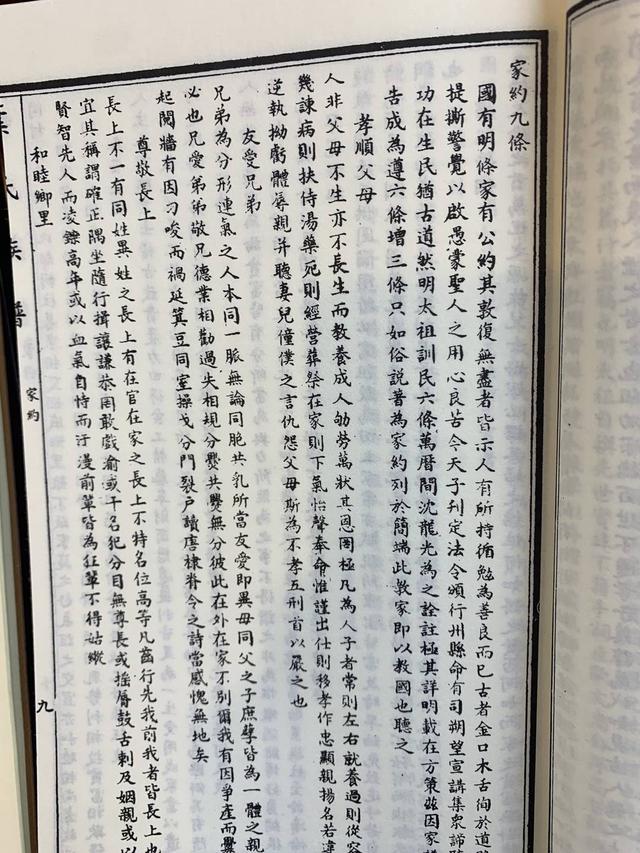 家約九條
國有明條家有公約其敦復無盡者皆示人有所持循勉為善良而已古者金口木舌徇於道路
提撕警覺以啟愚蒙聖人之用心良苦今天子刊定法令頒行州縣命有司朔望宣講集眾諦
功在生民猶古道然明太祖訓民六條萬曆間沈龍光為之詮註極其詳明載在方策茲因家
告成為遵六條增三條只如俗說著為家約列於簡端此教家即以教國也聽之
孝順父母
人非父母不生亦不長生而教養成人劬勞萬狀其恩罔極凡為人子者常則左右就養過則從容
幾諫病則扶侍湯藥死則經營葬祭在家則下氣怡聲奉命惟謹出仕則移孝作忠顯親揚名若違
逆執拗虧體辱親并聽妻兒僮僕之言仇怨父母斯為不孝五刑首以嚴之也
友愛兄弟
兄弟為分形連氣之人本同一脈無論同胞共乳所當友愛即異母同父之子庶孽皆為一體之親
必也兄愛弟弟敬兄德業相勸過失相規分爨共爨無分彼此在外在家不別爾我有因爭產而釁
起鬩牆有因刁唆而禍延箕豆同室操戈分門裂戶讀唐棣脊令之詩當感愧無地矣
尊敬長上
長上不一有同姓異姓之長上有在官在家之長上不特名位高等凡齒行先我前我者皆長上也
宜其稱謂確正隅坐隨行揖讓謙恭罔敢戲渝或干名犯分目無尊長或搖唇鼓舌刺及姻親或以
賢智先人而凌鑠高年或以血氣自恃而汙漫前輩皆為狂輩不得姑縱
和睦鄉里
氏族譜
家約
九